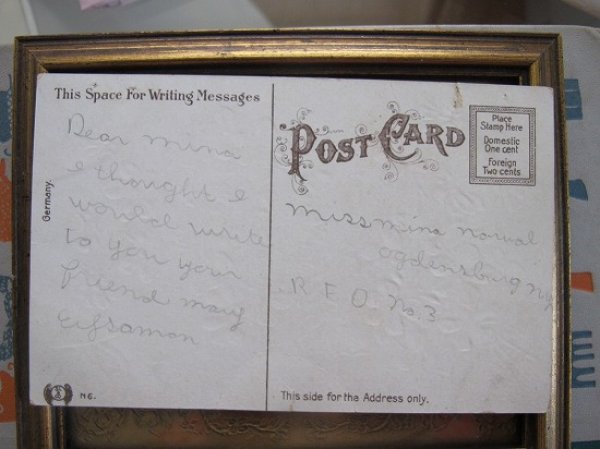 This Space For Writing Messages
Dear mina
I thought I
would write
to you your
friend mary
Germany.
N6.
POST CARD
Place
Stamp Here
Domestic
One cent
Foreign
Two cents
miss mina
ogdensburg ny
R F D. No. 3
This side for the Address only.